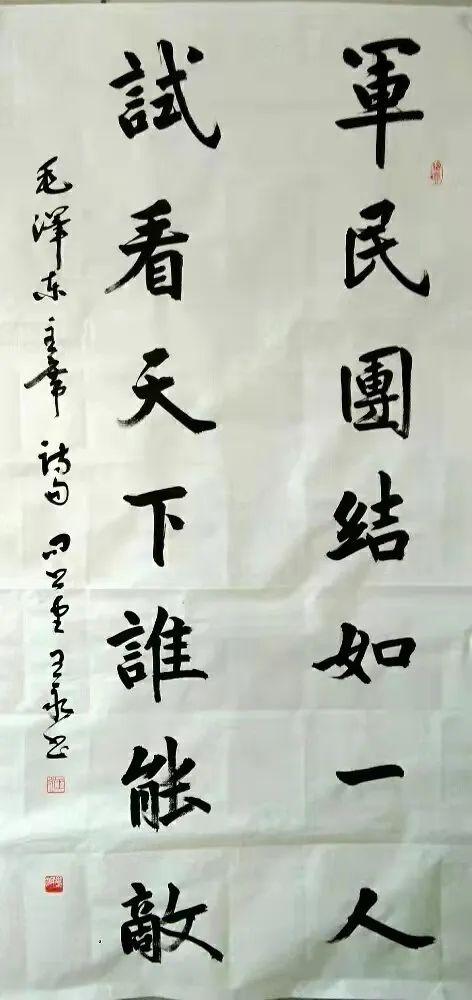 軍民團結如一人
試看天下誰能敵
毛澤东主席詩句 王永书